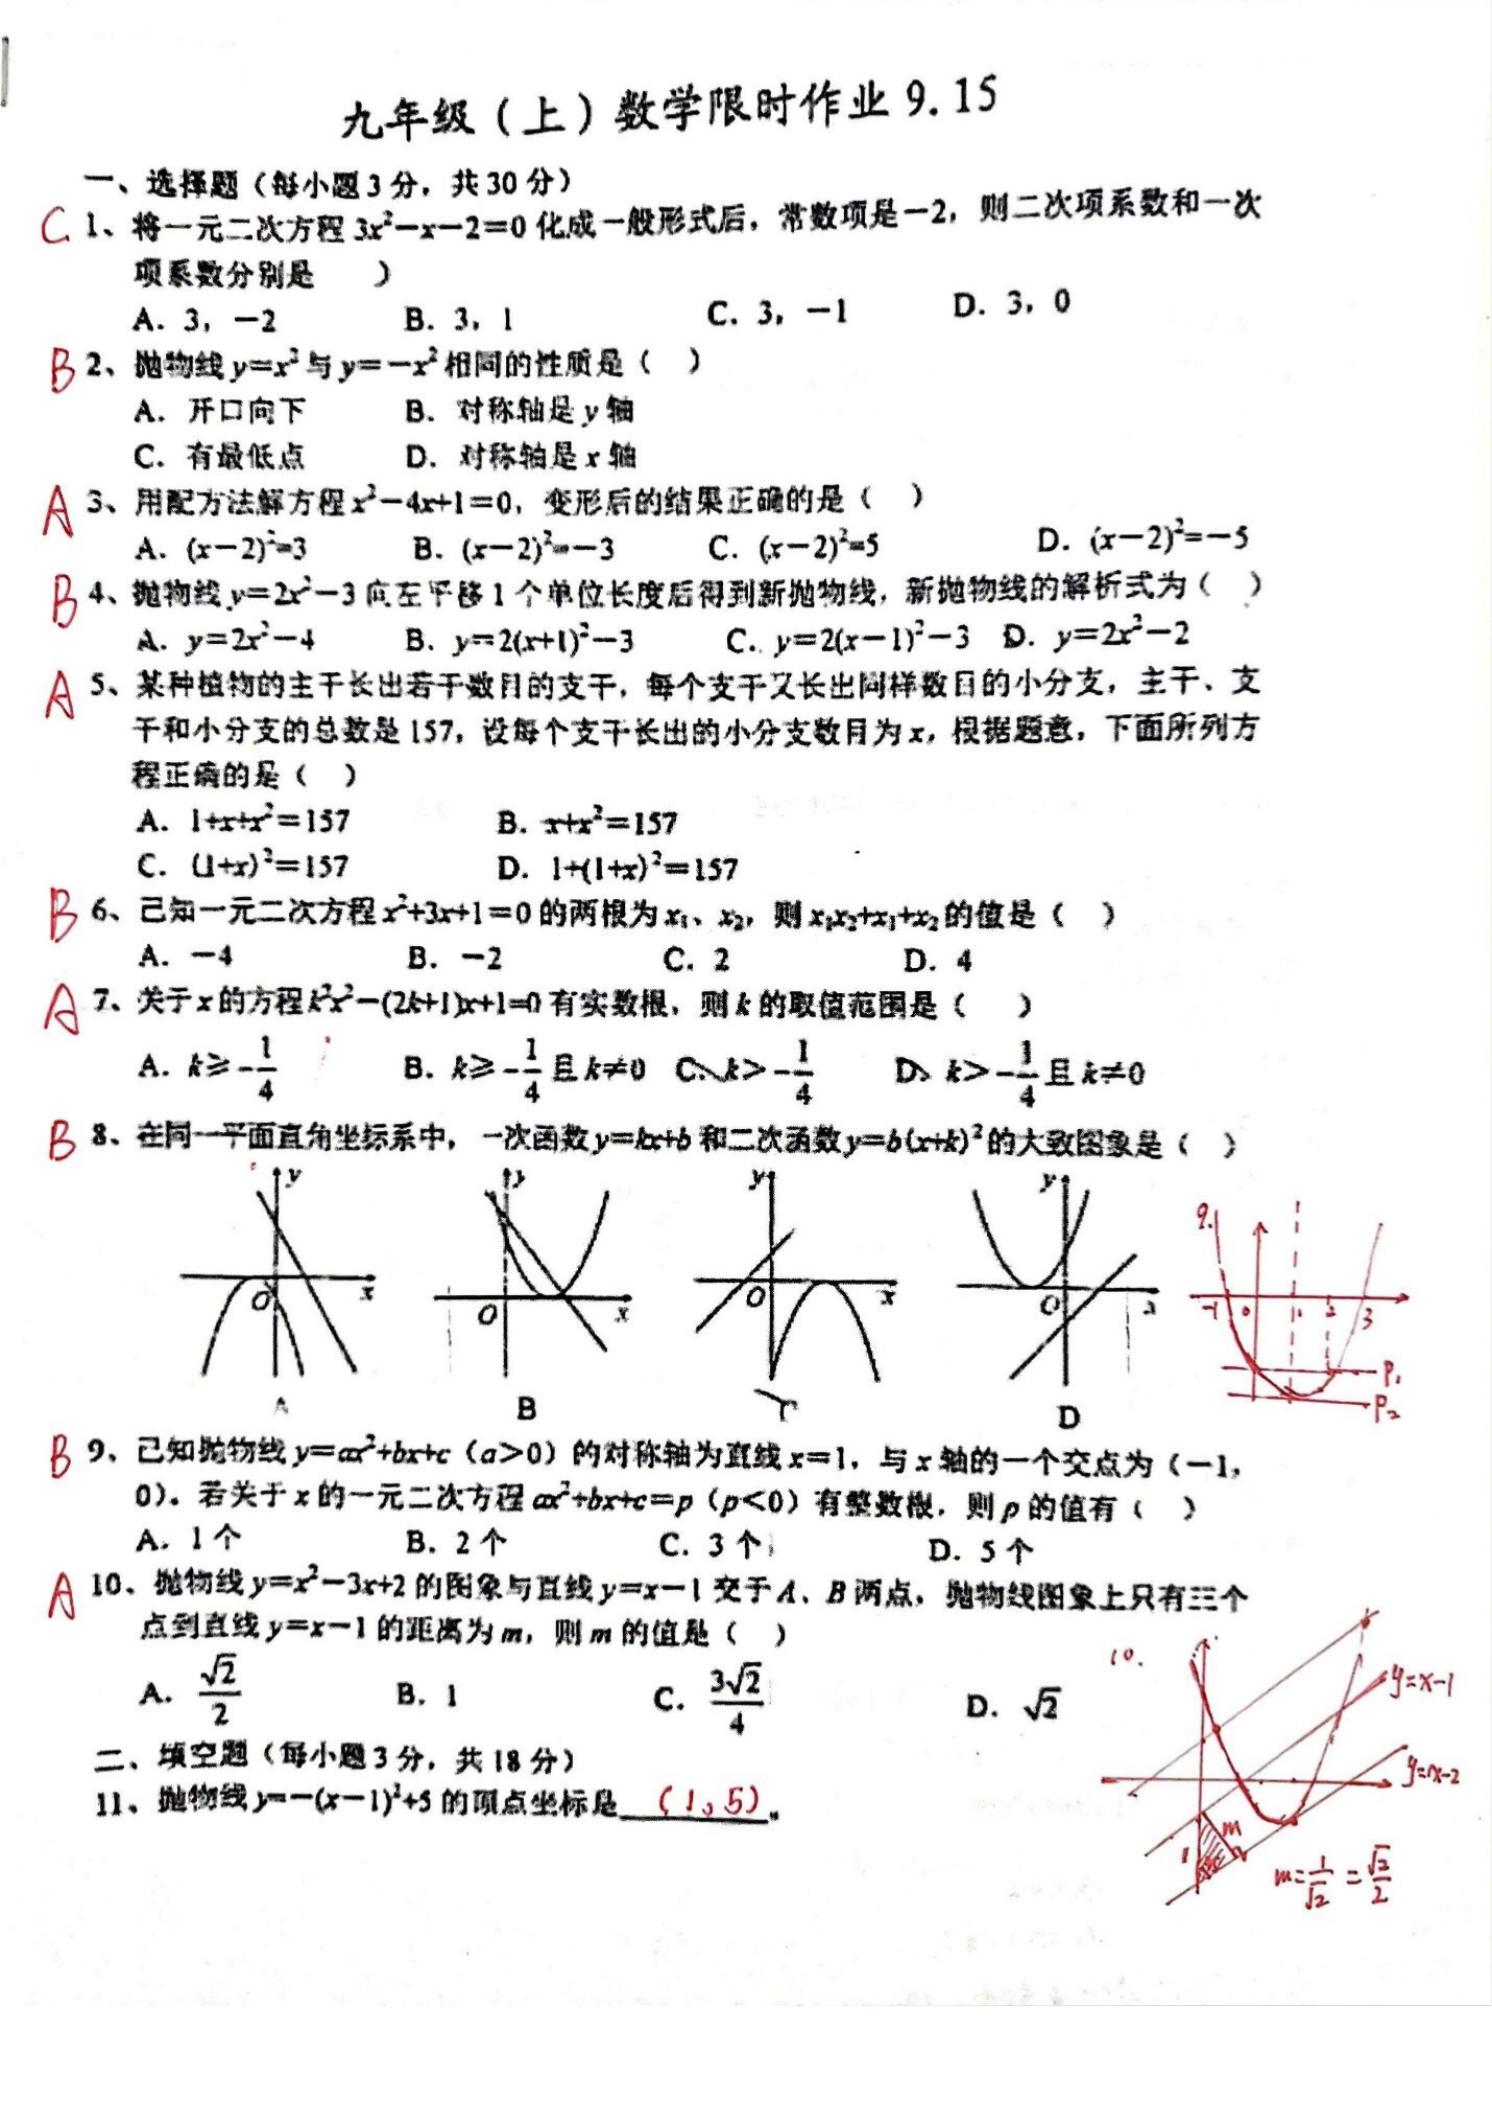 九年级（上）数学限时作业 9.15
一、选择题（每小题3分，共30分）
C 1、将一元二次方程 3x²－x－2＝0 化成一般形式后，常数项是－2，则二次项系数和一次
项系数分别是　　）
A．3，－2　B．3，1　C．3，－1　D．3，0
B 2、抛物线 y＝x² 与 y＝－x² 相同的性质是（　）
A．开口向下　B．对称轴是 y 轴
C．有最低点　D．对称轴是 x 轴
A 3、用配方法解方程 x²－4x+1＝0，变形后的结果正确的是（　）
A．(x－2)²＝3　B．(x－2)²＝－3　C．(x－2)²＝5　D．(x－2)²＝－5
B 4、抛物线 y＝2x²－3 向左平移 1 个单位长度后得到新抛物线，新抛物线的解析式为（　）
A．y＝2x²－4　B．y＝2(x+1)²－3　C．y＝2(x－1)²－3　D．y＝2x²－2
A 5、某种植物的主干长出若干数目的支干，每个支干又长出同样数目的小分支，主干、支
干和小分支的总数是 157，设每个支干长出的小分支数目为 x，根据题意，下面所列方
程正确的是（　）
A．1+x+x²＝157　B．x+x²＝157
C．(1+x)²＝157　D．1+(1+x)²＝157
B 6、已知一元二次方程 x²+3x+1＝0 的两根为 x₁、x₂，则 x₁x₂+x₁+x₂ 的值是（　）
A．－4　B．－2　C．2　D．4
A 7、关于 x 的方程 k²x²－(2k+1)x+1＝0 有实数根，则 k 的取值范围是（　）
A．k≥-1/4　B．k≥-1/4 且 k≠0　C、k＞-1/4　D、k＞-1/4 且 k≠0
B 8、在同一平面直角坐标系中，一次函数 y＝kx+b 和二次函数 y＝b(x+k)² 的大致图象是（　）
y　y　y　y　9.
O　x　O　x　O　x　O　x　-1　0　1　2　3
P₁
P₂
A　B　D
B 9、已知抛物线 y＝ax²+bx+c（a＞0）的对称轴为直线 x＝1，与 x 轴的一个交点为（－1，
0）。若关于 x 的一元二次方程 ax²+bx+c＝p（p＜0）有整数根，则 p 的值有（　）
A．1 个　B．2 个　C．3 个　D．5 个
A 10、抛物线 y＝x²－3x+2 的图象与直线 y＝x－1 交于 A、B 两点，抛物线图象上只有三个
点到直线 y＝x－1 的距离为 m，则 m 的值是（　）
A．√2/2　B．1　C．3√2/4　D．√2
10.
y=x-1
y=x-2
1　m
m=1/√2=√2/2
二、填空题（每小题3分，共18分）
11、抛物线 y＝－(x－1)²+5 的顶点坐标是 (1,5)。